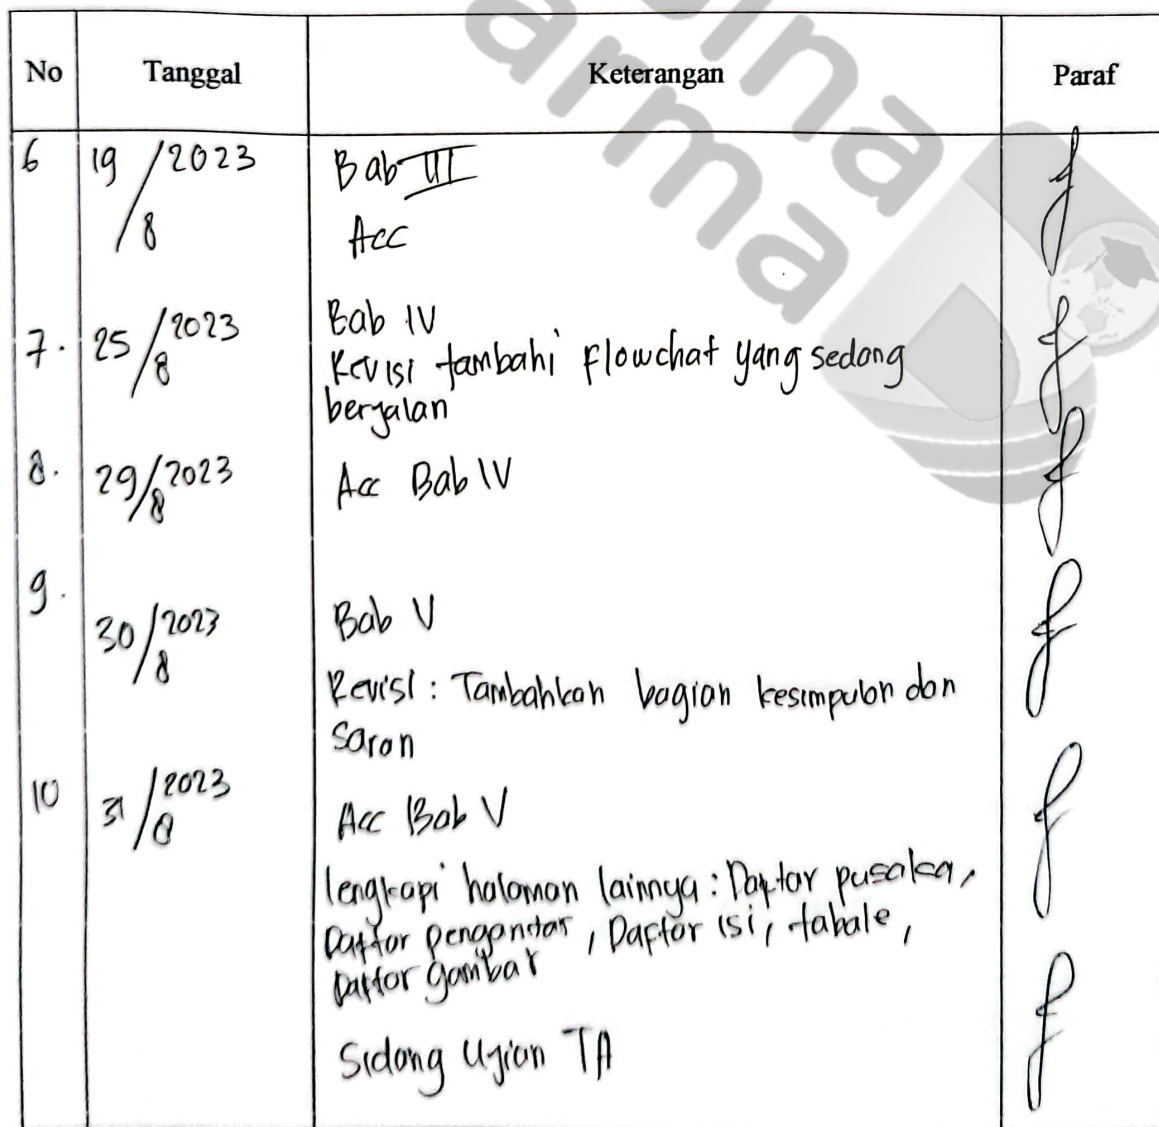 No Tanggal Keterangan Paraf
6 19/8 2023 Bab III
Acc
7. 25/8 2023 Bab IV
Revisi tambahi flowchat yang sedang
berjalan
8. 29/8 2023 Acc Bab IV
9.
30/8 2023 Bab V
Revisi : Tambahkan bagian kesimpulan dan
saran
10 31/8 2023 Acc Bab V
lengkapi halaman lainnya : Daftar pusaka,
Daftar pengantar, Daftar isi, tabale,
Daftar gambar
Sidang Ujian TA
bina
darma